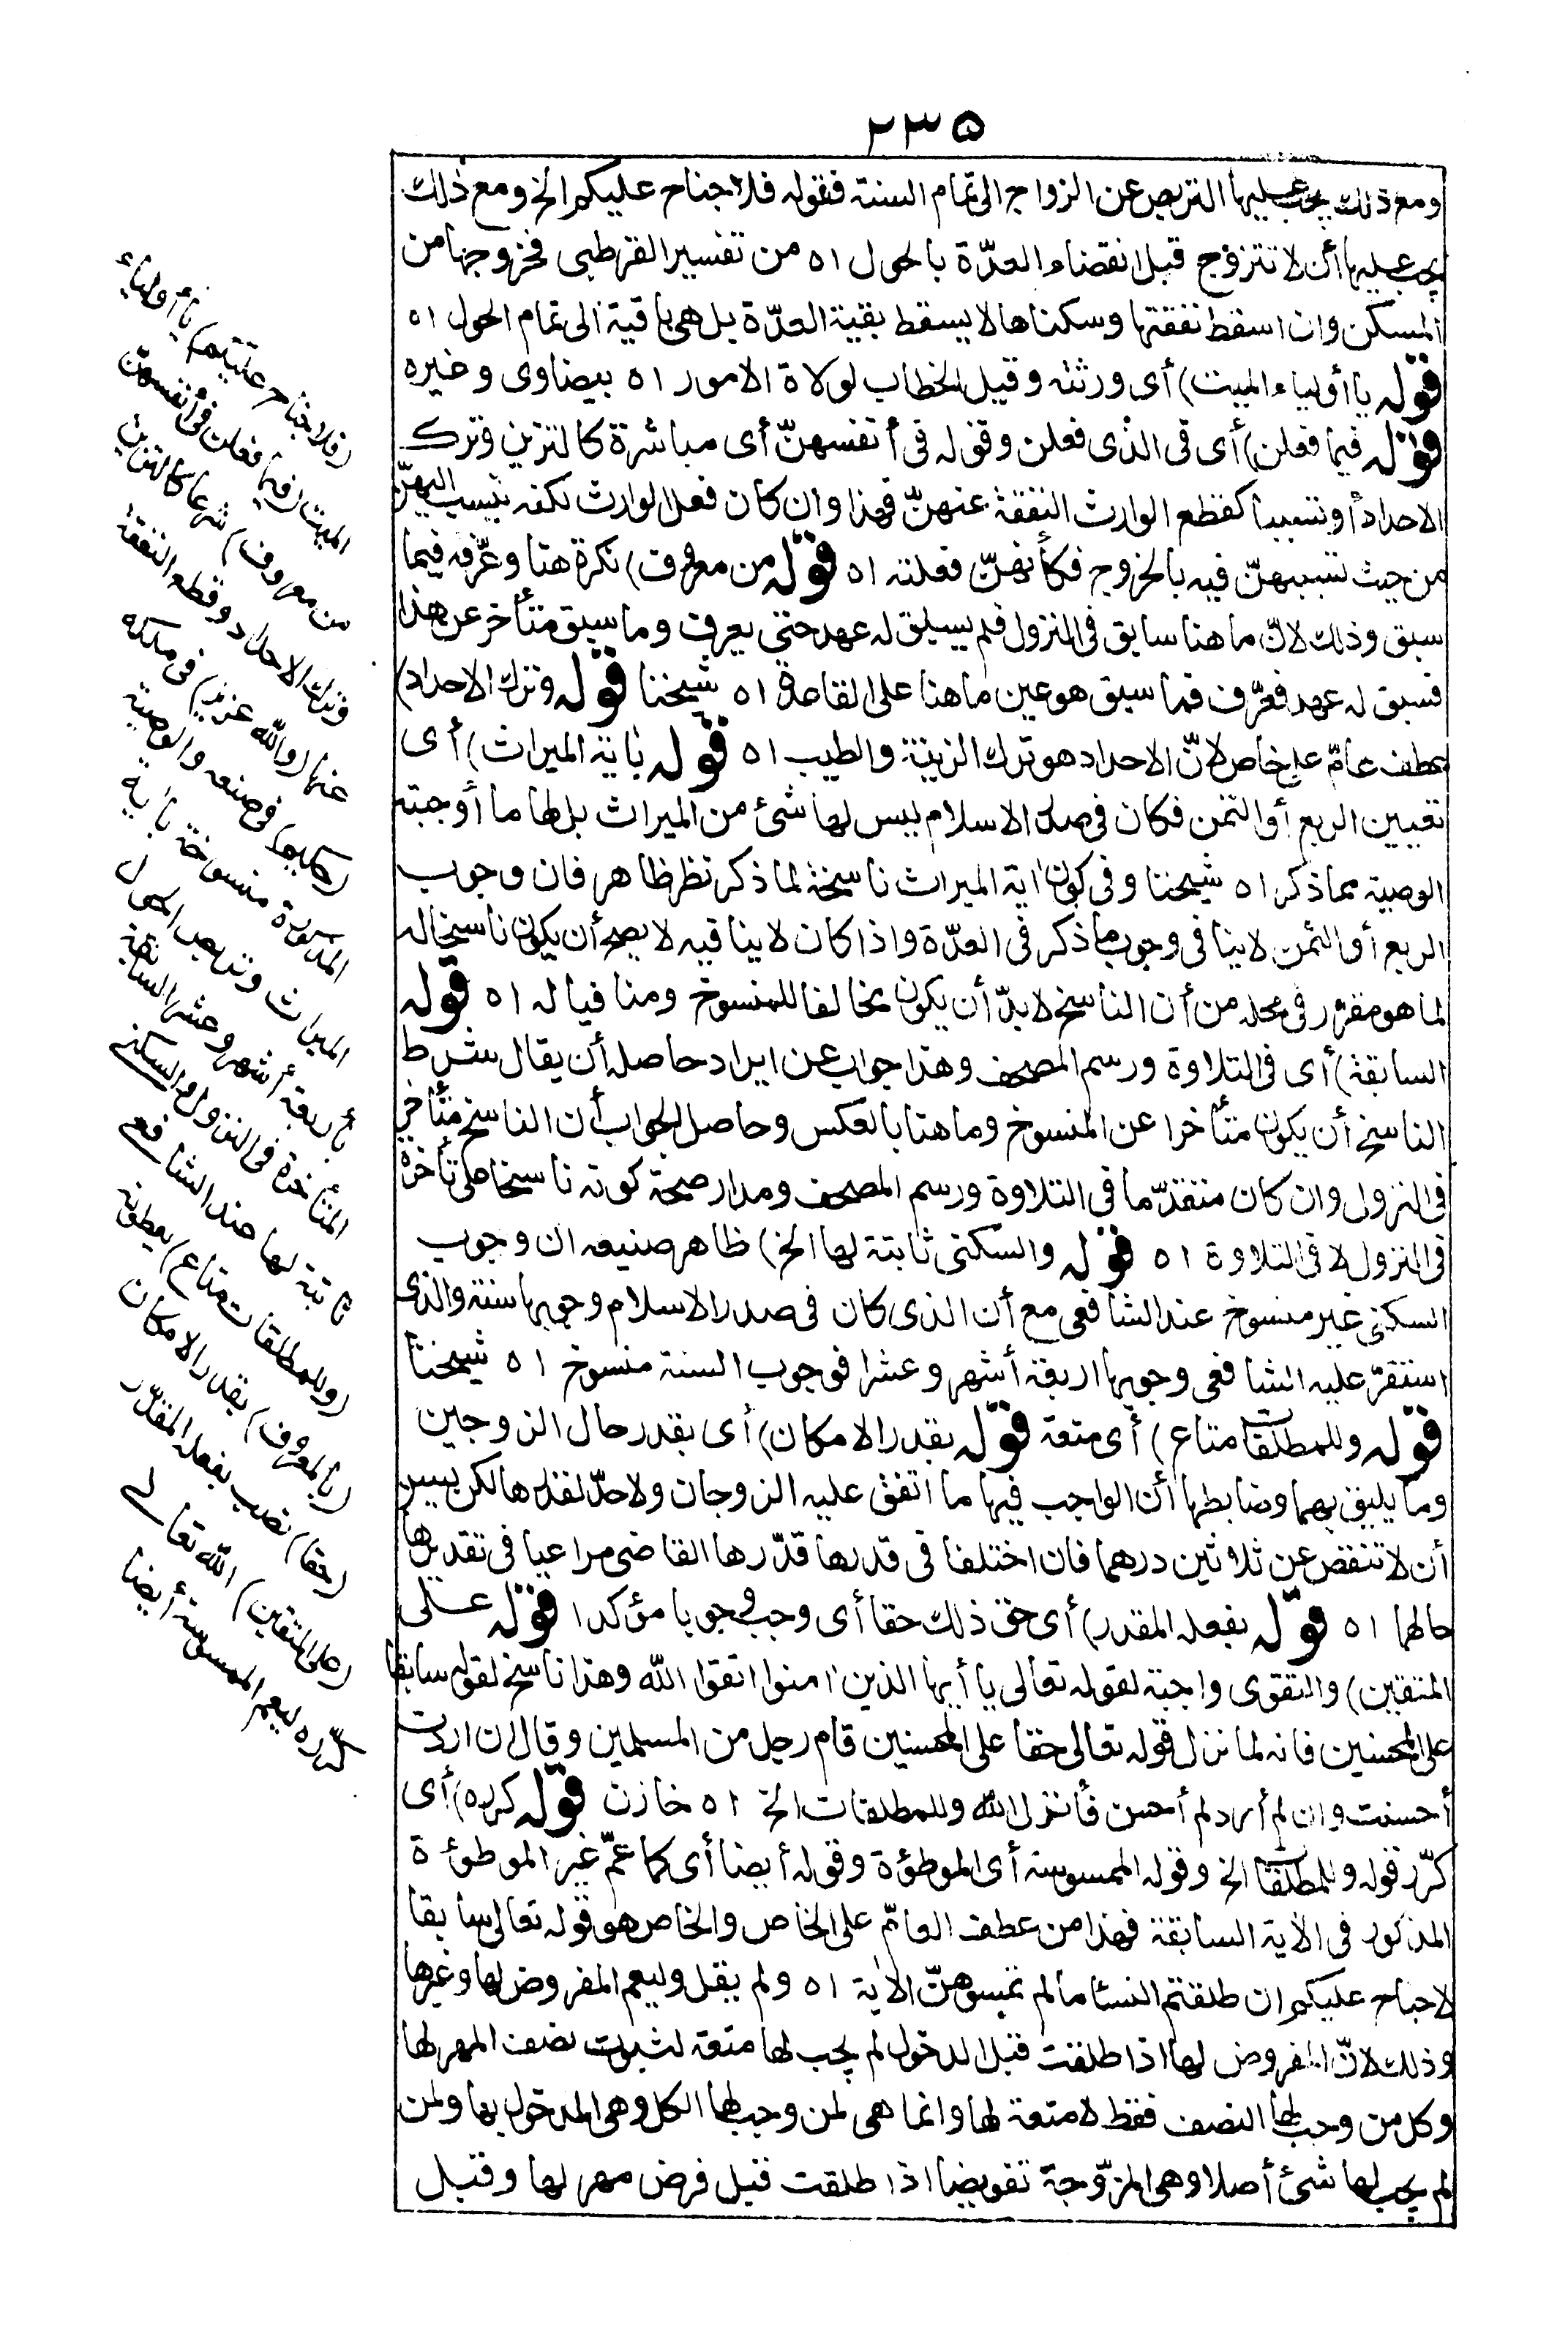 ٢٣٥
ومع ذلك يجب عليها التربص عن الزواج الى تمام السنة فقوله فلا جناح عليكم الخ ومع ذلك
يجب عليها أن لا تتزوج قبل انقضاء العدّة بالحول اه من تفسير القرطبى فخروجها من
المسكن وان اسقط نفقتها وسكناها لا يسقط بقية العدّة بل هى باقية الى تمام الحول اه
قوله يا أولياء الميت) أى ورثته وقيل الخطاب لولاة الامور اه بيضاوى وغيره
قوله فيما فعلن) أى فى الذى فعلن وقوله فى أنفسهنّ أى مباشرة كالتزين وترك
الاحداد أو تسببا كقطع الوارث النفقة عنهنّ فهذا وان كان فعل الوارث لكنه ينسب اليهنّ
من حيث تسببهنّ فيه بالخروج فكأنهنّ فعلنه اه قوله من معروف) نكرة هنا وعرّفه فيما
سبق وذلك لانّ ما هنا سابق فى النزول فلم يسبق له عهد حتى يعرف وما سبق متأخر عن هذا
فسبق له عهد فعرّف فما سبق هو عين ما هنا على القاعدة اه شيخنا قوله وترك الاحداد)
عطف عامّ على خاص لانّ الاحداد هو ترك الزينة والطيب اه قوله بآية الميراث) أى
تعيين الربع أو الثمن فكان فى صدر الاسلام ليس لها شئ من الميراث بل لها ما أوجبته
الوصية مما ذكر اه شيخنا وفى كون اية الميراث ناسخة لما ذكر نظر ظاهر فان وجوب
الربع أو الثمن لا ينافى وجوب ما ذكر فى العدّة واذا كان لا ينافيه لا يصح أن يكون ناسخا له
لما هو مقرّر فى محله من أن الناسخ لا بدّ أن يكون مخالفا للمنسوخ ومنافيا له اه قوله
السابقة) أى فى التلاوة ورسم المصحف وهذا جواب عن ايراد حاصله أن يقال شرط
الناسخ أن يكون متأخرا عن المنسوخ وما هنا بالعكس وحاصل الجواب أن الناسخ متأخر
فى النزول وان كان متقدّما فى التلاوة ورسم المصحف ومدار صحة كونه ناسخا على تأخره
فى النزول لا فى التلاوة اه قوله والسكنى ثابتة لها الخ) ظاهر صنيعه ان وجوب
السكنى غير منسوخ عند الشافعى مع أن الذى كان فى صدر الاسلام وجوبها سنة والذى
استقرّ عليه الشافعى وجوبها اربعة أشهر وعشرا فوجوب السنة منسوخ اه شيخنا
قوله وللمطلقات متاع) أى متعة قوله بقدر الامكان) أى بقدر حال الزوجين
وما يليق بهما وضابطها أن الواجب فيها ما اتفق عليه الزوجان ولا حدّ لقدرها لكن يسن
أن لا تنقص عن ثلاثين درهما فان اختلفا فى قدرها قدّرها القاضى مراعيا فى تقديرها
حالهما اه قوله بفعله المقدر) أى حق ذلك حقا أى وجب وجوبا مؤكدا قوله على
المتقين) والتقوى واجبة لقوله تعالى يا أيها الذين امنوا اتقوا الله وهذا ناسخ لقوله سابقا
على المحسنين فانه لما نزل قوله تعالى حقا على المحسنين قام رجل من المسلمين وقال ان اردت
أحسنت وان لم أرد لم أحسن فأنزل الله وللمطلقات الخ اه خازن قوله كرره) أى
كرّر قوله وللمطلقات الخ وقوله الممسوسة أى الموطؤة وقوله أيضا أى كما عمّ غير الموطؤة
المذكور فى الآية السابقة فهذا من عطف العامّ على الخاص والخاص هو قوله تعالى سابقا
لا جناح عليكم ان طلقتم النسا ما لم تمسوهنّ الآية اه ولم يقل وليعم المفروض لها وغيرها
وذلك لانّ المفروض لها اذا طلقت قبل الدخول لم يجب لها متعة لثبوت نصف المهر لها
وكل من وجب لها النصف فقط لا متعة لها وانما هى لمن وجب لها الكل وهى المدخول بها ولمن
لم يجب لها شئ أصلا وهى المزوّجة تفويضا اذا طلقت قبل فرض مهر لها وقبل
(فلا جناح عليكم) يا أولياء
الميت (فيما فعلن فى أنفسهنّ
من معروف) شرعا كالتزين
وترك الاحداد وقطع النفقة
عنها (والله عزيز) فى ملكه
(حكيم) فى صنعه والوصية
المذكورة منسوخة بآية
الميراث وتربص الحول
بأربعة أشهر وعشر السابقة
المتأخرة فى النزول والسكنى
ثابتة لها عند الشافعى
(وللمطلقات متاع) يعطونه
(بالمعروف) بقدر الامكان
(حقا) نصب بفعله المقدّر
(على المتقين) الله تعالى
كرّره ليعم الممسوسة أيضا